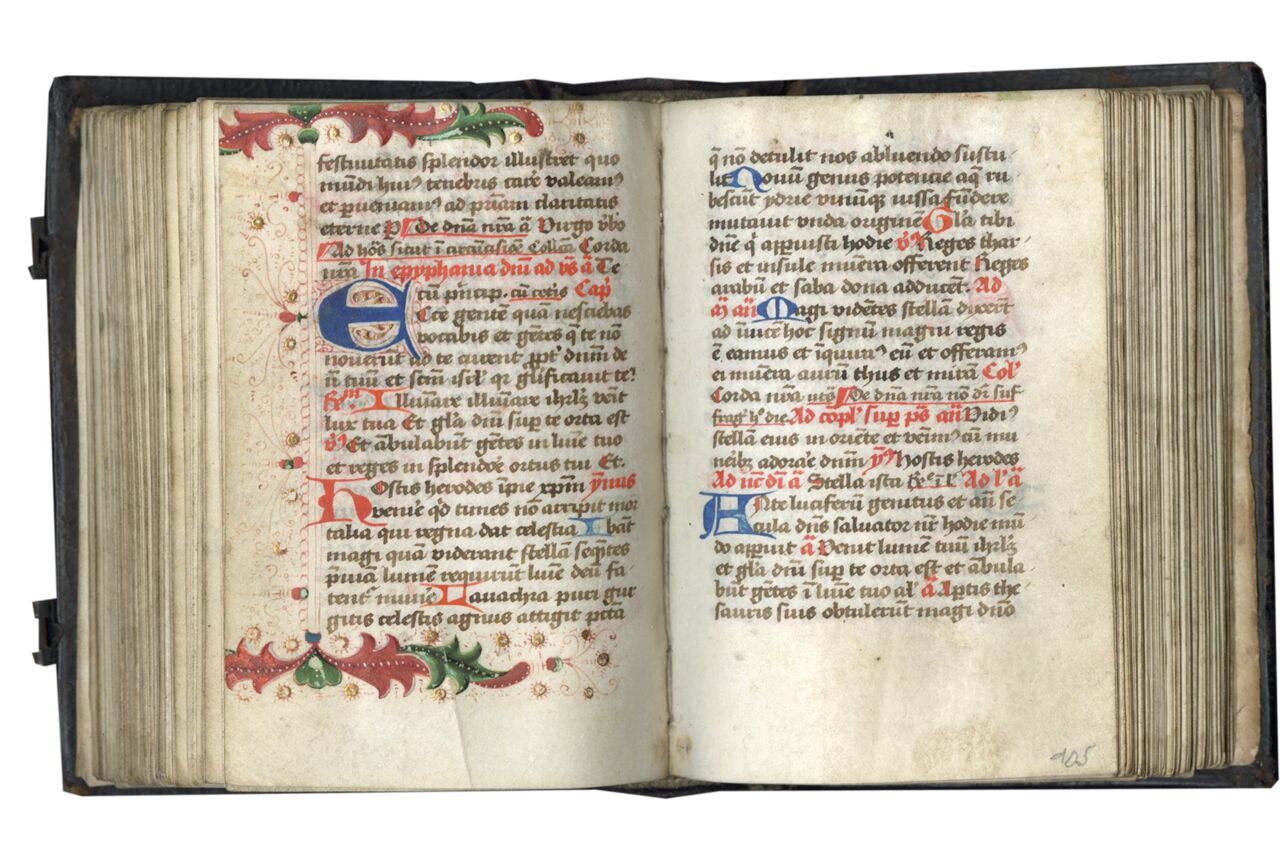 festiuitatis splendor illustret quo
mūdi huiꝰ tenebris care͛ valeamꝰ
et ꝑueniamꝰ ad pꝛiam claritatis
eterne De dn̄a nr̄a ā Virgo v̄bo
Ad hōs sicut ī circūcisiōe Collc̄a Corda
nr̄a In epyphania dn̄i ad vs̄ ā Te
cū pⁱncip. cū cetis Capͫ
Ecce gentē quā nesciebas
vocabis et gētes q̄ te nō
nouerūt ad te current ꝓpt͛ dn̄m de
ū tuū et sc̄m isrl̓ qr gl̓ificauit te.
Illumare illumīare ihrl̄m veīt
lux tua Et gl̓a dn̄i suꝑ te orta est
℣ Et ābulabūt gētes in luīe tuo
et reges in splendoē ortus tui Et.
Ostis herodes īpie xp̄m ymnus
venire qd̓ times nō arripit mor
talia qui regna dat celestia Ibāt
magi quā viderant stellā seq̄ntes
p̄uiā lumē requirūt luīe deū fa
tentꝰ mun̓e Lauachra puri gur
gitis celestis agnus attigit pctā
q̄ nō detulit nos abluendo sustu
lit Nouū genus potencie aq̄ ru
bescūt ydrie vinūqꝫ iussa fūdere
mutauit vnda originē Gl̓a tibi
dn̄e q̄ apparuisti hodie ℣ Reges thar
sis et insule mun̄era offerent Reges
arabū et saba dona adducēt. Ad
m̄ añ Magi vidētes stellā dixerūt
ad inuicē hoc signū magni regis
ē eamus et īquiramꝰ eū et offeramꝰ
ei mun̄era aurū thus et mirrā Colꝰ
Corda nr̄a vts̄ De dn̄a nr̄a nō dr̄ suf
frag̓ hͦdie. Ad copl̓ suꝑ ps̄ añ Vidiꝰ
stellā eius in oriēte et venimꝰ cū mu
neribꝫ adorare dnm̄ ymꝰ Hostis herodes
Ad nc̄ dī ā Stella ista Ad l̓ ā
Ante luciferū genitus et añ se
cula dn̄s saluator nr̄ hodie mū
do apparuit ā Venit lumē tuū ihrl̄m
et gl̓a dn̄i suꝑ te orta est et ābula
būt gētes ī luīe tuo al̓ ā Aptis the
sauris suis obtulerūt magi dn̄o
105